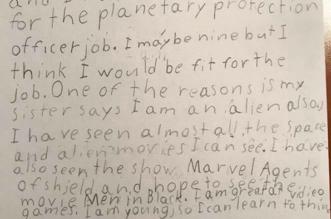 for the planetary protection
officer job. I may be nine but I
think I would be fit for the
job. One of the reasons is my
sister says I am an alien also
I have seen almost all the space
and alien movies I can see. I have
also seen the show Marvel Agents
of Shield and hope to see the
movie Men in Black. I am great at vidieo
games. I am young, so I can learn to thin